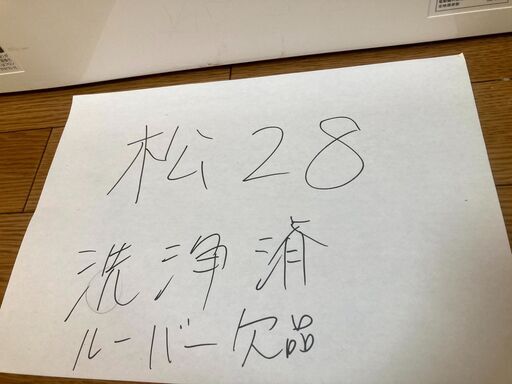 松28
洗浄済
ルーバー欠品